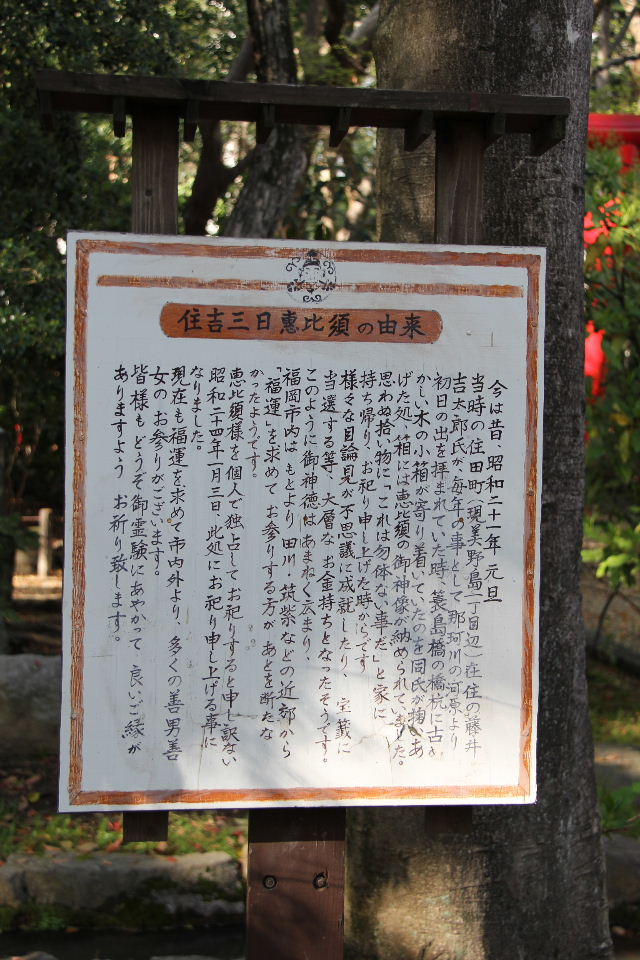 住吉三日恵比須の由来
今は昔、昭和二十一年 元旦
当時の住田町(現美野島一丁目辺)在住の藤井
吉太郎氏が、毎年の事として 那珂川の河原より
初日の出を拝まれていた時、簑島橋の橋杭に古め
かしい木の小箱が寄り着いていたのを同氏が掬いあ
げた処、箱には恵比須の御神像が納められてありました。
思わぬ拾い物に、「これは勿体ない事だ」と家に
持ち帰り、お祀り申し上げた時からです。
様々な目論見が不思議に成就したり、宝籤に
当選する等、大層な お金持ちとなったそうです。
このように御神徳はあまねく広まり、
福岡市内は もとより、田川・筑紫などの近郊から
「福運」を求めて お参りする方が あとを断たな
かったようです。
恵比須様を個人で独占してお祀りすると申し訳ない
昭和二十四年一月三日、此処にお祀り申し上げる事に
なりました。
現在も福運を求めて 市内外より、多くの善男善
女の お参りがございます。
皆様も どうぞ御霊験にあやかって、良いご縁が
ありますよう お祈り致します。